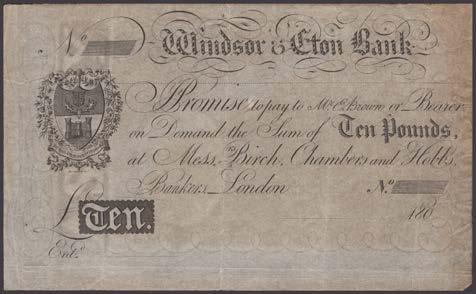 No Windsor & Eton Bank
I Promise to pay to Mr. C. Brown or Bearer
on Demand the Sum of Ten Pounds,
at Messrs. Birch, Chambers and Hobbs,
Bankers_London No.
180
£ Ten.
Entd.